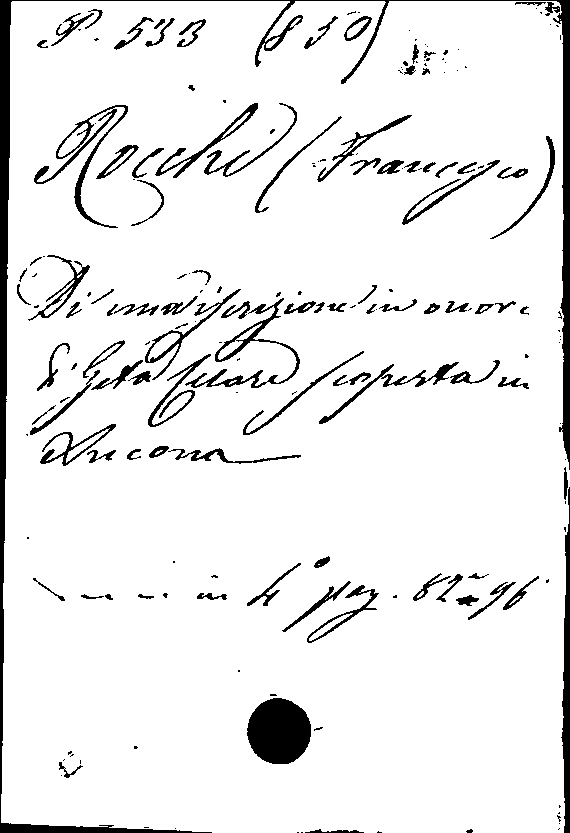 P. 533 (850)
Rocchi (Francesco)
Di una iscrizione in onore
di Geta Cesare scoperta in
Ancona
in 4° pag. 82 a 96